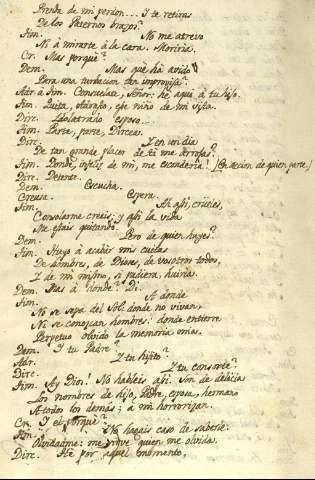 Prenda de mi perdon... Y te retiras
De los Paternos brazos?
Tim. No me atrevo
Ni à mirarte à la cara. Moriria.
Cr. Mas porquè?
Dem. Mas què ha avido
Para una turbacion tan improvisa?
Adr. à Tim. Consuelate, Señor: he aqui à tu hijo.
Tim. Quita, Adrasto, ese niño de mi vista.
Dirc. Idolatrado esposo.
Tim. Parte, parte, Dircea.
Dirc. Y en un dia
De tan grande placer de tì me arrojas?
Tim. Donde, infeliz de mi, me esconderia! (En accion de quien parte.)
Dirc. Detente.
Dem. Escucha.
Creusa. Espera.
Tim. Ah asi, crueles,
Consolarme creeis; y asi la vida
Me estais quitando.
Dem. Pero de quien huyes?
Tim. Huyo à acabar mis cuitas
De hombres, de Dioses, de vosotros todos,
Y de mi mismo, si pudiera, huiria.
Dem. Mas à donde? Di.
Tim. A donde
No se sepa del Sol: donde no vivan,
Ni se conozcan hombres: donde entierre
Perpetuo olvido la memoria mia.
Dem. Y tu Padre?
Adr. Y tu hijito?
Dirc. Y tu consorte?
Tim. Ay Dios! No hableis asi. Son de delicia
Los nombres de hijo, Padre, esposa, hermano
A todos los demàs; a mi horrorizan.
Cr. Y el porquè?
Tim. No hagais caso de saberle.
Olvidadme: me sirve quien me olvida.
Dirc. Hè por aquel momento,